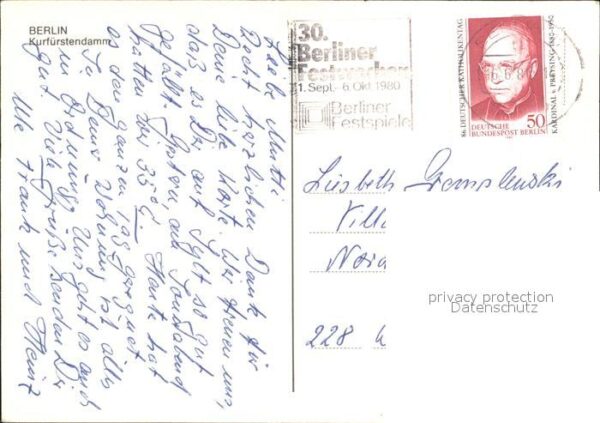 BERLIN
Kurfürstendamm
Liebe Mutti
Recht herzlichen Dank für
Deine liebe Karte. Wir freuen uns,
daß es Dir auf Sylt so gut
gefällt. Gestern am Sonnabend
hatten wir 35°C. Heute hat
es den ganzen Tag geregnet
In Deine Wohnung ist alles
in Ordnung. Uns geht es auch
gut. Viele Grüße senden Dir
Ute Frank und Heinz
30.
Berliner
Festwochen
1. Sept. - 6. Okt. 1980
Berliner
Festspiele
86. DEUTSCHER KATHOLIKENTAG
KARDINAL v. PREYSING 1880-1950
DEUTSCHE
BUNDESPOST BERLIN
50
Liesbeth
Villa
228
privacy protection
Datenschutz